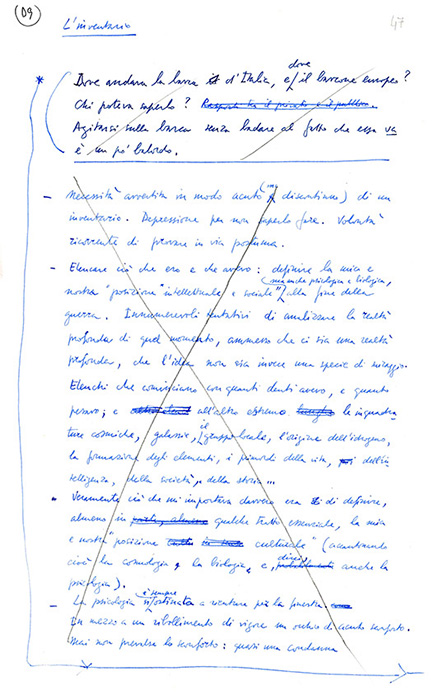 (09)
L'inventario
47
* Dove andava la barca d'Italia, e dove il barcone europeo?
Chi poteva saperlo? Rapporto tra il privato e il pubblico.
Agitarsi sulla barca senza badare al fatto che essa va
è un po' balordo.
- Necessità avvertita in modo acuto (ma discontinuo) di un
inventario. Depressione per non saperlo fare. Volontà
ricorrente di provare in via postuma.
- Elencare ciò che ero e che avevo: definire la mia e
nostra "posizione" intellettuale e sociale (ma anche psicologica e biologica,) alla fine della
guerra. Innumerevoli tentativi di analizzare la realtà
profonda di quel momento, ammesso che ci sia una realtà
profonda, che l'idea non sia invece una specie di miraggio.
Elenchi che cominciano con quanti denti avevo, e quanto
pesavo; e all'altro estremo le inquadra-
ture cosmiche, galassie, il gruppo locale, l'origine dell'idrogeno,
la formazione degli elementi, i primordi della vita, dell'in-
telligenza, della società, della storia...
- Veramente ciò che mi importava davvero era di definire,
almeno in qualche tratto essenziale, la mia
e nostra "posizione culturale" (accantonando
cioè la cosmologia, la biologia, e, direi, anche la
psicologia).
- La psicologia si è sempre ostinata a rientrare per la finestra.
In mezzo a un ribollimento di vigore un nucleo di acuto sconforto.
Mai non prevalse lo sconforto: quasi una condanna